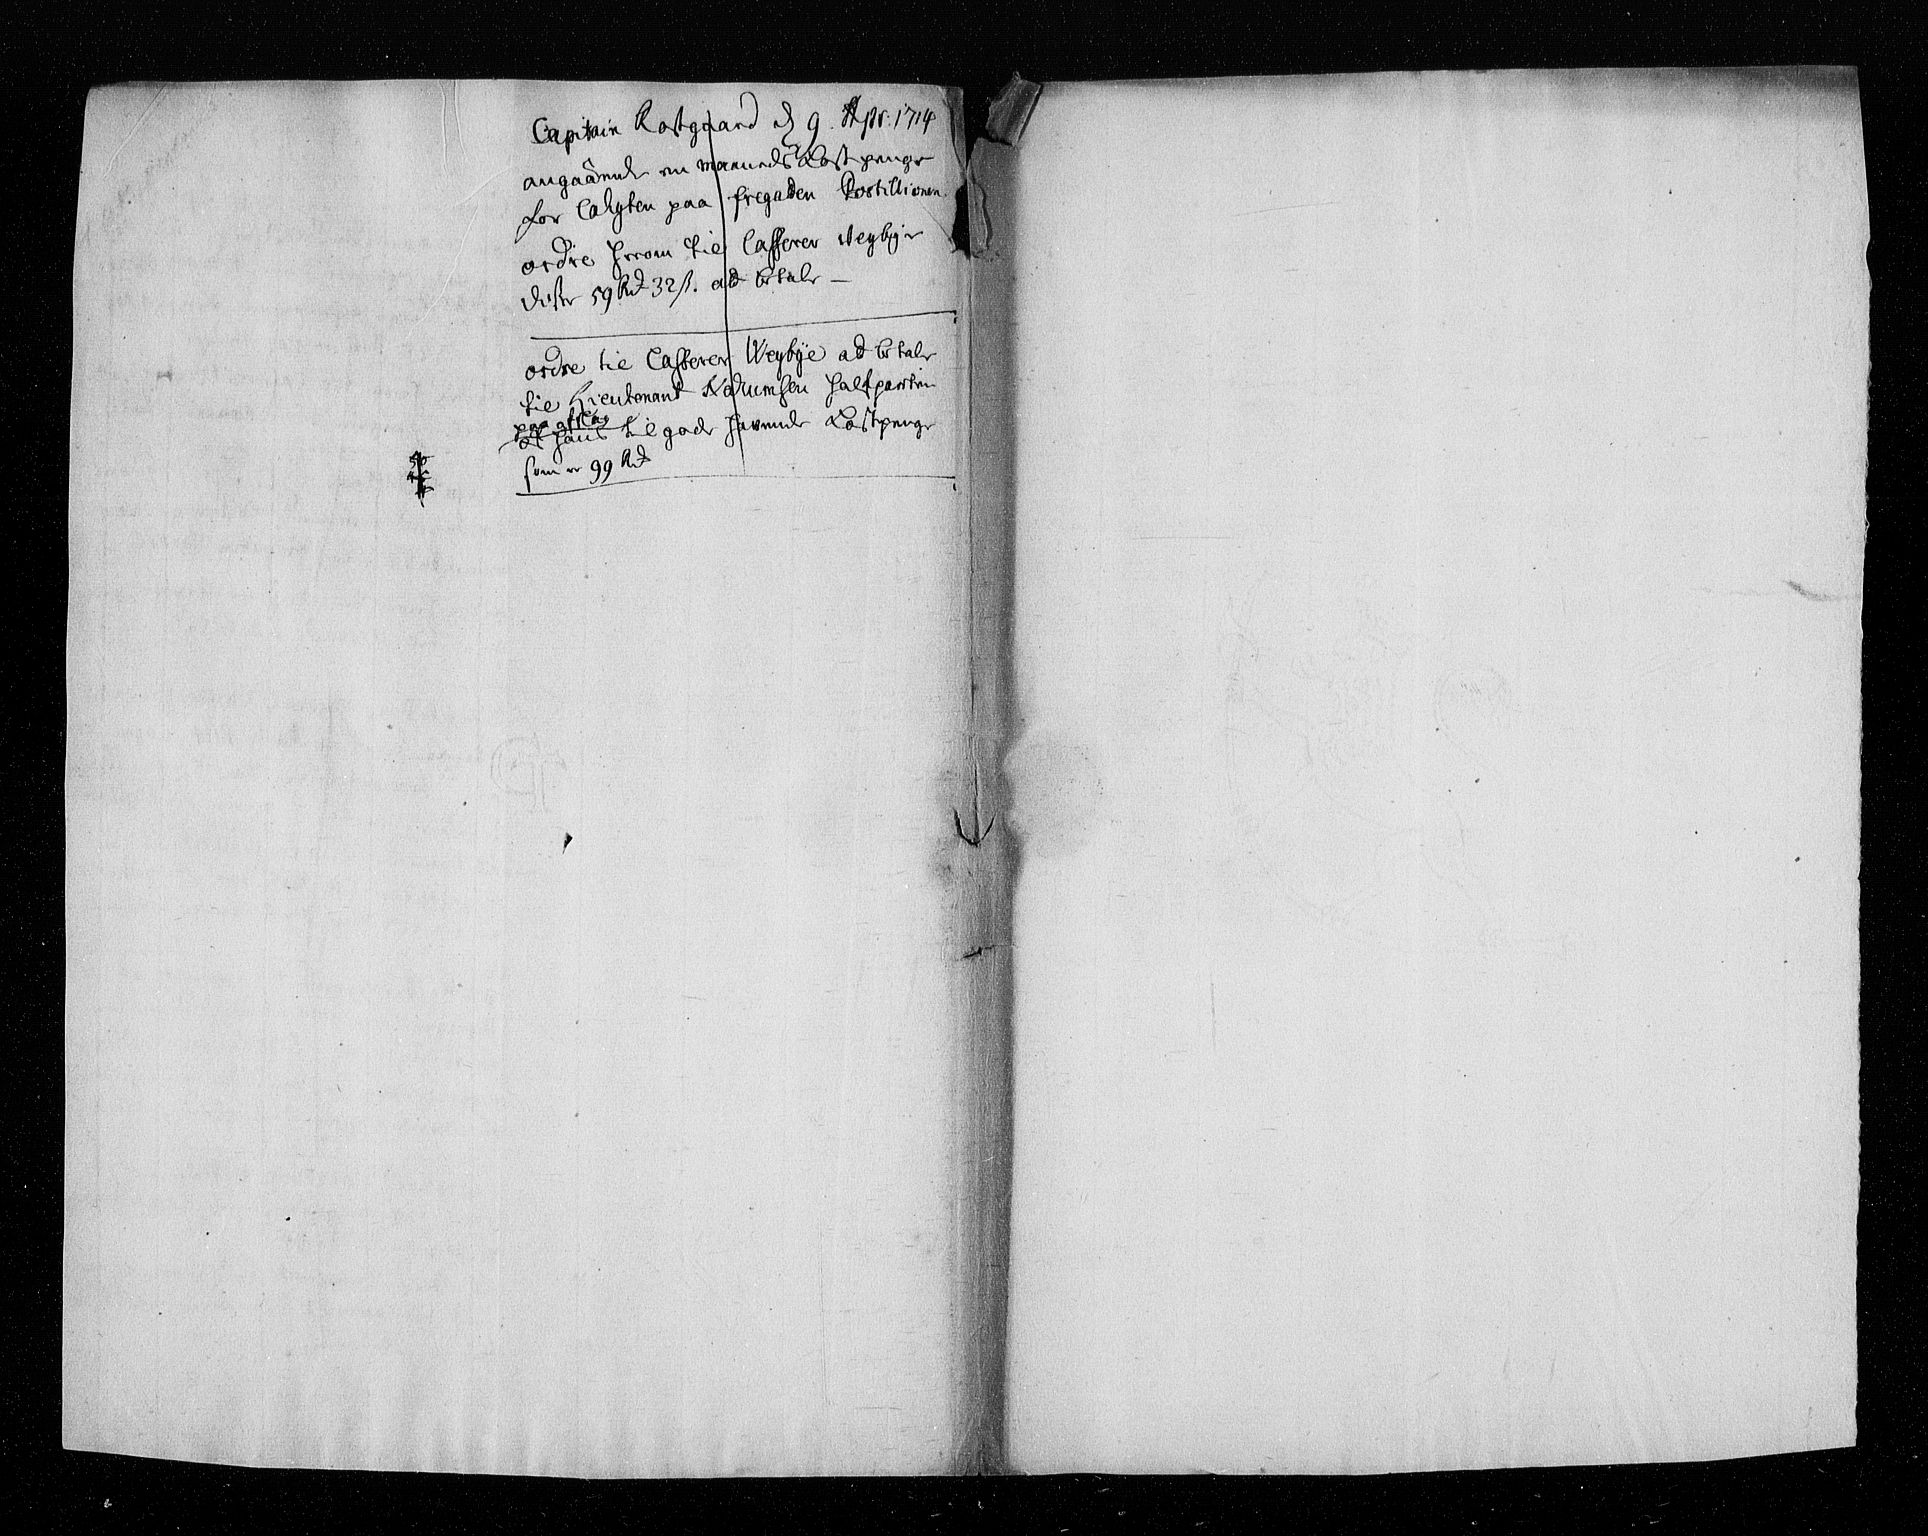 Capitain Rostgaard d 9. Apr. 1714
angaaende en maaneds Kostpenge
for Cahyten paa fregaden Postillionen.
ordre herom til Casserer Weybye
disse 59 Rd 32 s. at betale —
ordre til Casserer Weybye at betale
til Lieutenant halfparten
paa
af hans til gode hafvende Kostpenge
som er 99 Rd